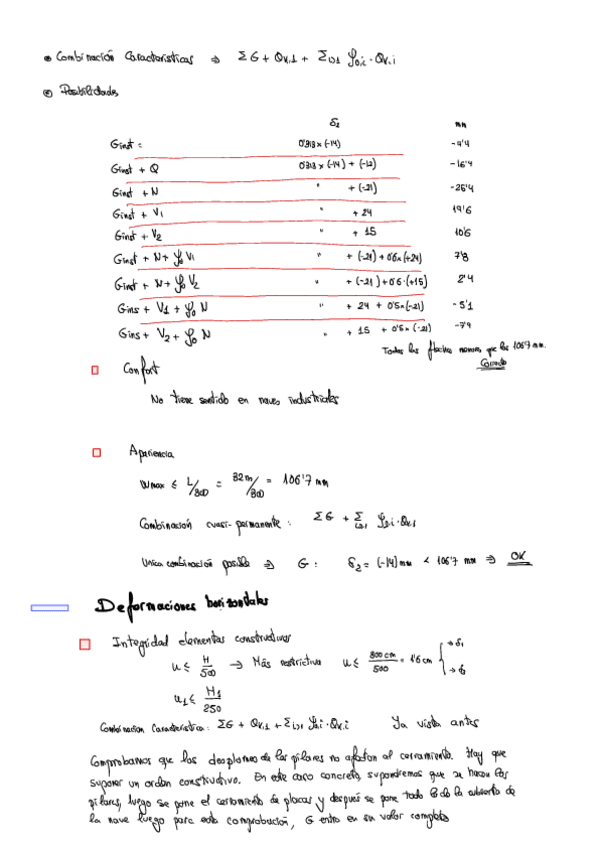 Combinación Características ⇒ ΣG + Qk,1 + Σi>1 φ0,i · Qk,i
Posibilidades
δ2 mm
Ginst = 0'313 x (-14) -4'4
Ginst + Q 0'313 x (-14) + (-12) -16'4
Ginst + N " + (-21) -25'4
Ginst + V1 " + 24 19'6
Ginst + V2 " + 15 10'6
Ginst + N + φ0 V1 " + (-21) + 0'6x(+24)
Ginst + N + φ0 V2 " + (-21) + 0'6·(+15)
Gins + V1 + φ0 N " + 24 + 0'5x(-21)
Gins + V2 + φ0 N " + 15 + 0'5x(-21)
Todas las flechas menores que los 106'7 mm.
Correcto
Confort
No tiene sentido en naves industriales
Apariencia
Wmax ≤ L/300 = 32m/300 = 106'7 mm
Combinación cuasi-permanente: ΣG + Σ φ2,i · Qk,i
Única combinación posible ⇒ G: δ2 = (-14) mm < 106'7 mm ⇒ OK
Deformaciones horizontales
Integridad elementos constructivos
u ≤ H/500 → Más restrictiva u ≤ 800 cm/500 = 1'6 cm
u1 ≤ H1/250
Combinación Característica: ΣG + Qk,1 + Σi>1 φ0,i · Qk,i Ya vista antes
Comprobamos que los desplomes de los pilares no afectan al cerramiento. Hay que
suponer un orden constructivo. En este caso concreto, supondremos que se hacen los
pilares, luego se pone el cerramiento de placas y después se pone todo G de la cubierta de
la nave luego para esta comprobación, G entra en su valor completo